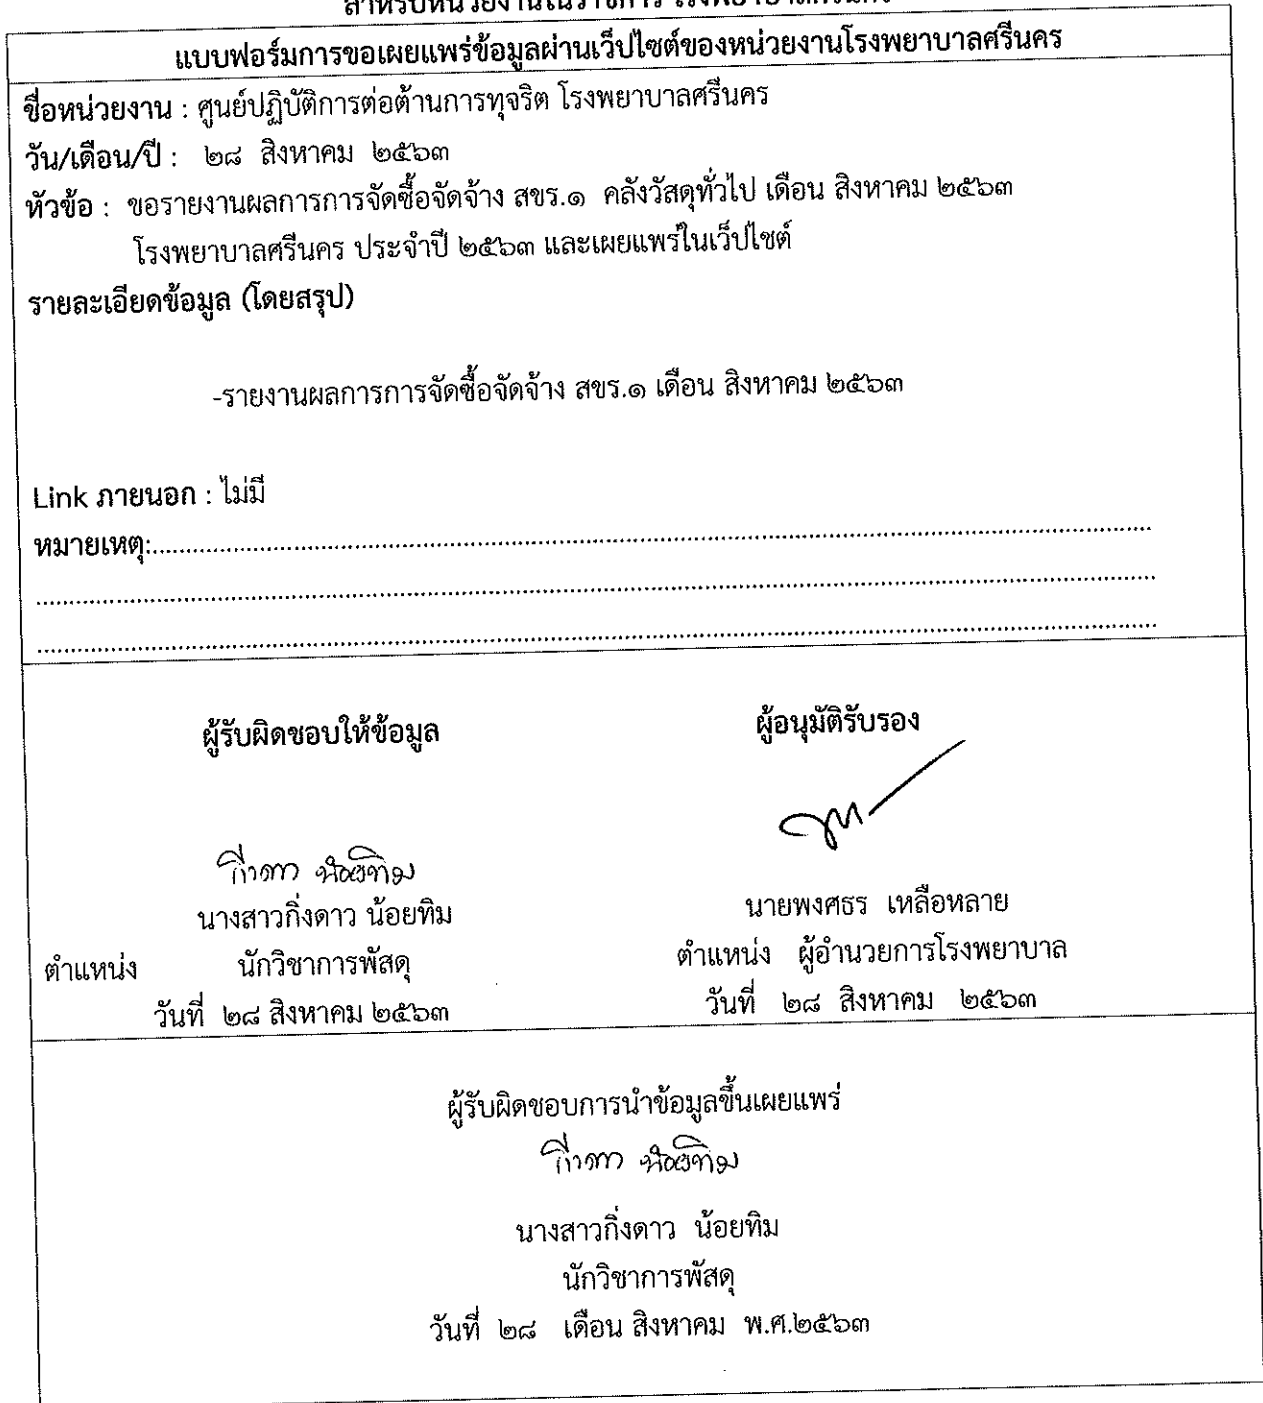 สำหรับหน่วยงานในราชการ โรงพยาบาลศรีนคร
แบบฟอร์มการขอเผยแพร่ข้อมูลผ่านเว็ปไซต์ของหน่วยงานโรงพยาบาลศรีนคร
ชื่อหน่วยงาน : ศูนย์ปฏิบัติการต่อต้านการทุจริต โรงพยาบาลศรีนคร
วัน/เดือน/ปี : ๒๘ สิงหาคม ๒๕๖๓
หัวข้อ : ขอรายงานผลการการจัดซื้อจัดจ้าง สขร.๑ คลังวัสดุทั่วไป เดือน สิงหาคม ๒๕๖๓
โรงพยาบาลศรีนคร ประจำปี ๒๕๖๓ และเผยแพร่ในเว็ปไซต์
รายละเอียดข้อมูล (โดยสรุป)
-รายงานผลการการจัดซื้อจัดจ้าง สขร.๑ เดือน สิงหาคม ๒๕๖๓
Link ภายนอก : ไม่มี
หมายเหตุ:
ผู้รับผิดชอบให้ข้อมูล ผู้อนุมัติรับรอง
กิ่งดาว น้อยทิม
นางสาวกิ่งดาว น้อยทิม นายพงศธร เหลือหลาย
ตำแหน่ง นักวิชาการพัสดุ ตำแหน่ง ผู้อำนวยการโรงพยาบาล
วันที่ ๒๘ สิงหาคม ๒๕๖๓ วันที่ ๒๘ สิงหาคม ๒๕๖๓
ผู้รับผิดชอบการนำข้อมูลขึ้นเผยแพร่
กิ่งดาว น้อยทิม
นางสาวกิ่งดาว น้อยทิม
นักวิชาการพัสดุ
วันที่ ๒๘ เดือน สิงหาคม พ.ศ.๒๕๖๓